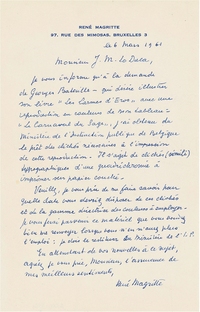 RENÉ MAGRITTE
97, RUE DES MIMOSAS, BRUXELLES 3
le 6 Mars 1961
Monsieur J. M. Lo Duca,
Je vous informe qu'à la demande
de Georges Bataille - qui désire illustrer
son livre "Les Larmes d'Eros" avec une
reproduction en couleurs de mon tableau -
"Le Carnaval du Sage", j'ai obtenu du
Ministère de l'Instruction publique de Belgique
le prêt des clichés nécessaires à l'impression
de cette reproduction. Il s'agit de clichés
typographiques d'une quadrichromie à
imprimer sur papier couché.
Veuillez, je vous prie, me faire savoir pour
quelle date vous devriez disposer de ces clichés
et de la gamme directrice des couleurs à employer.
Je vous ferai parvenir ce matériel que vous voudrez
bien me renvoyer lorsque vous n'en aurez plus
l'emploi : je dois le restituer au Ministère de l'I. P.
En attendant de vos nouvelles à ce sujet,
agréez, je vous prie, Monsieur, l'assurance de
mes meilleurs sentiments,
René Magritte